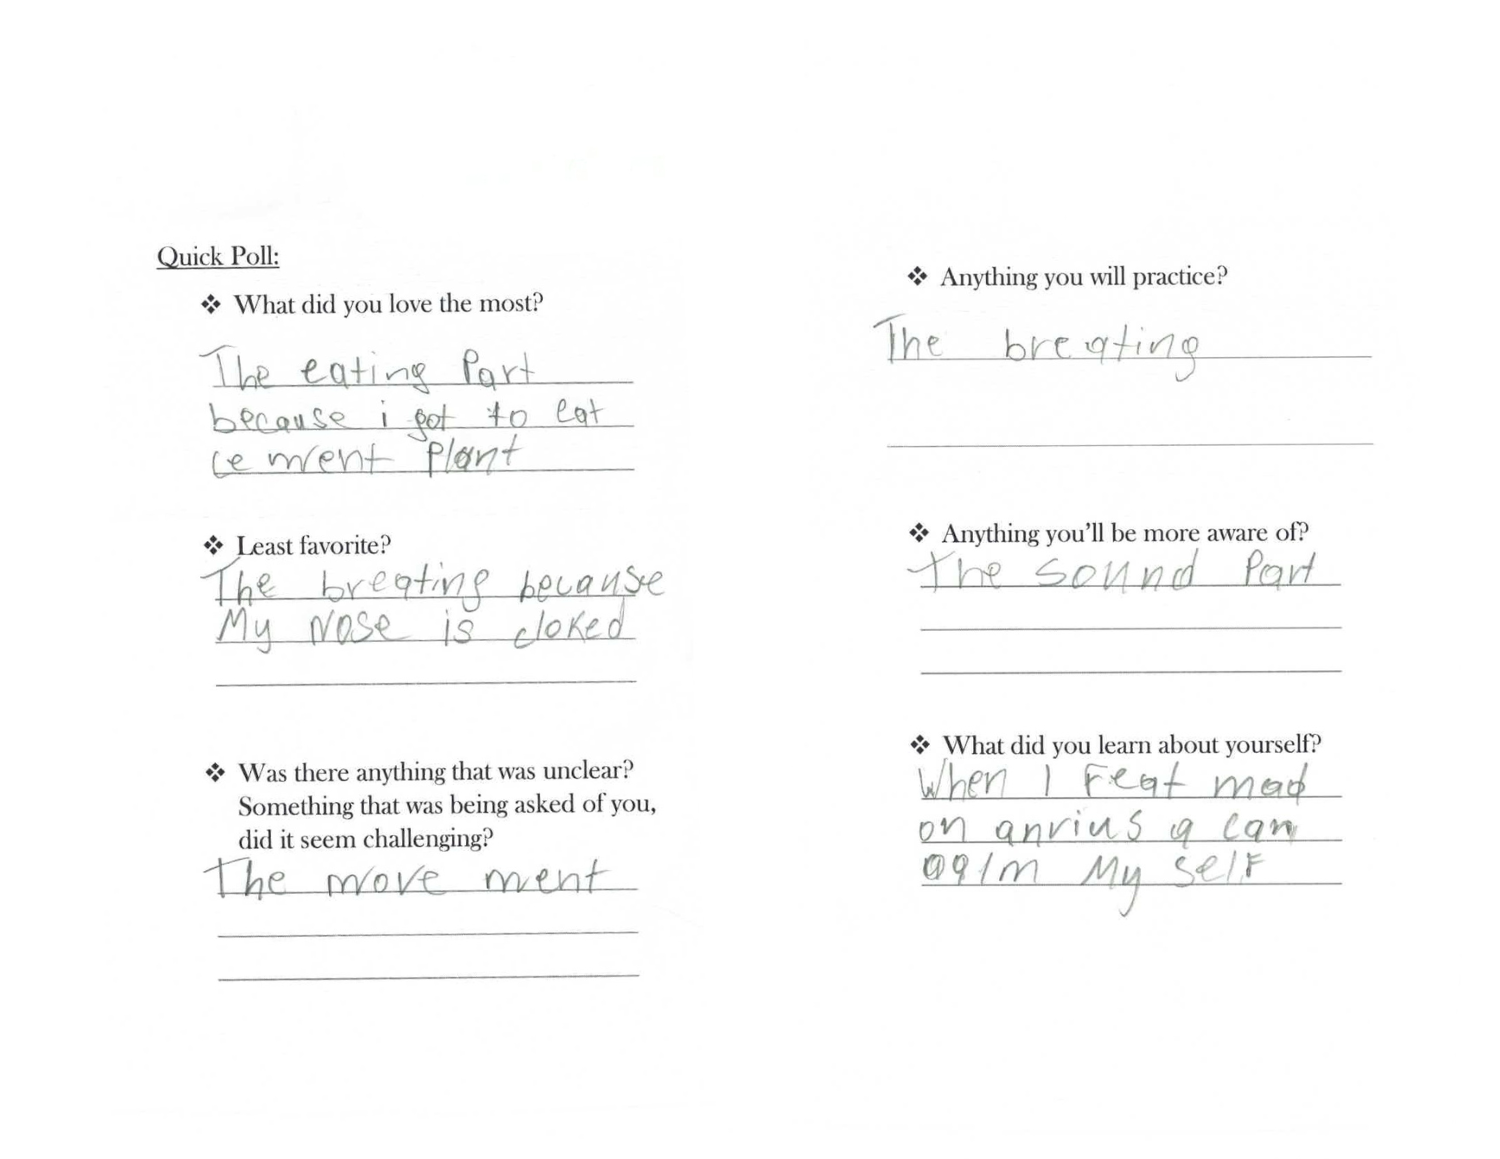 Quick Poll:
❖ What did you love the most?
The eating Part
because i got to eat
ce ment plant
❖ Least favorite?
The breating because
My Nose is cloked
❖ Was there anything that was unclear?
Something that was being asked of you,
did it seem challenging?
The move ment
❖ Anything you will practice?
The breating
❖ Anything you'll be more aware of?
The sound Part
❖ What did you learn about yourself?
When I Feat mad
on anrius a can
My self